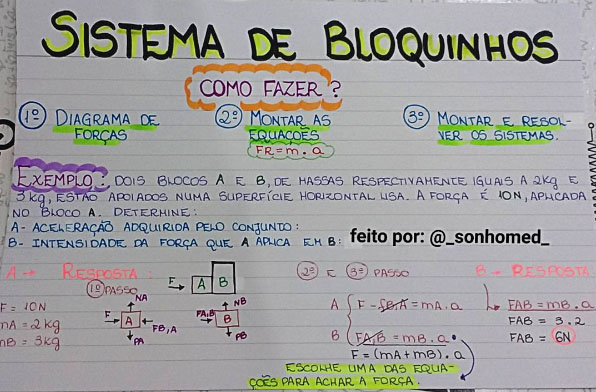 SISTEMA DE BLOQUINHOS
COMO FAZER?
1º DIAGRAMA DE FORÇAS
2º MONTAR AS EQUAÇÕES
FR=m.a
3º MONTAR E RESOL-
VER OS SISTEMAS.
EXEMPLO: DOIS BLOCOS A E B, DE MASSAS RESPECTIVAMENTE IGUAIS A 2kg E
3kg, ESTÃO APOIADOS NUMA SUPERFÍCIE HORIZONTAL LISA. A FORÇA É 10N, APLICADA
NO BLOCO A. DETERMINE:
A- ACELERAÇÃO ADQUIRIDA PELO CONJUNTO:
B- INTENSIDADE DA FORÇA QUE A APLICA EM B:
feito por: @_sonhomed_
A → RESPOSTA:
1º PASSO
F = 10N
mA = 2kg
mB = 3kg
F A B
NA
F A FB,A
PA
NB
FA,B B
PB
2º E 3º PASSO
A F - FB,A = mA.a
B FA,B = mB.a
F = (mA+mB).a
ESCOLHE UMA DAS EQUA-
ÇÕES PARA ACHAR A FORÇA.
B → RESPOSTA
FAB = mB.a
FAB = 3.2
FAB = 6N